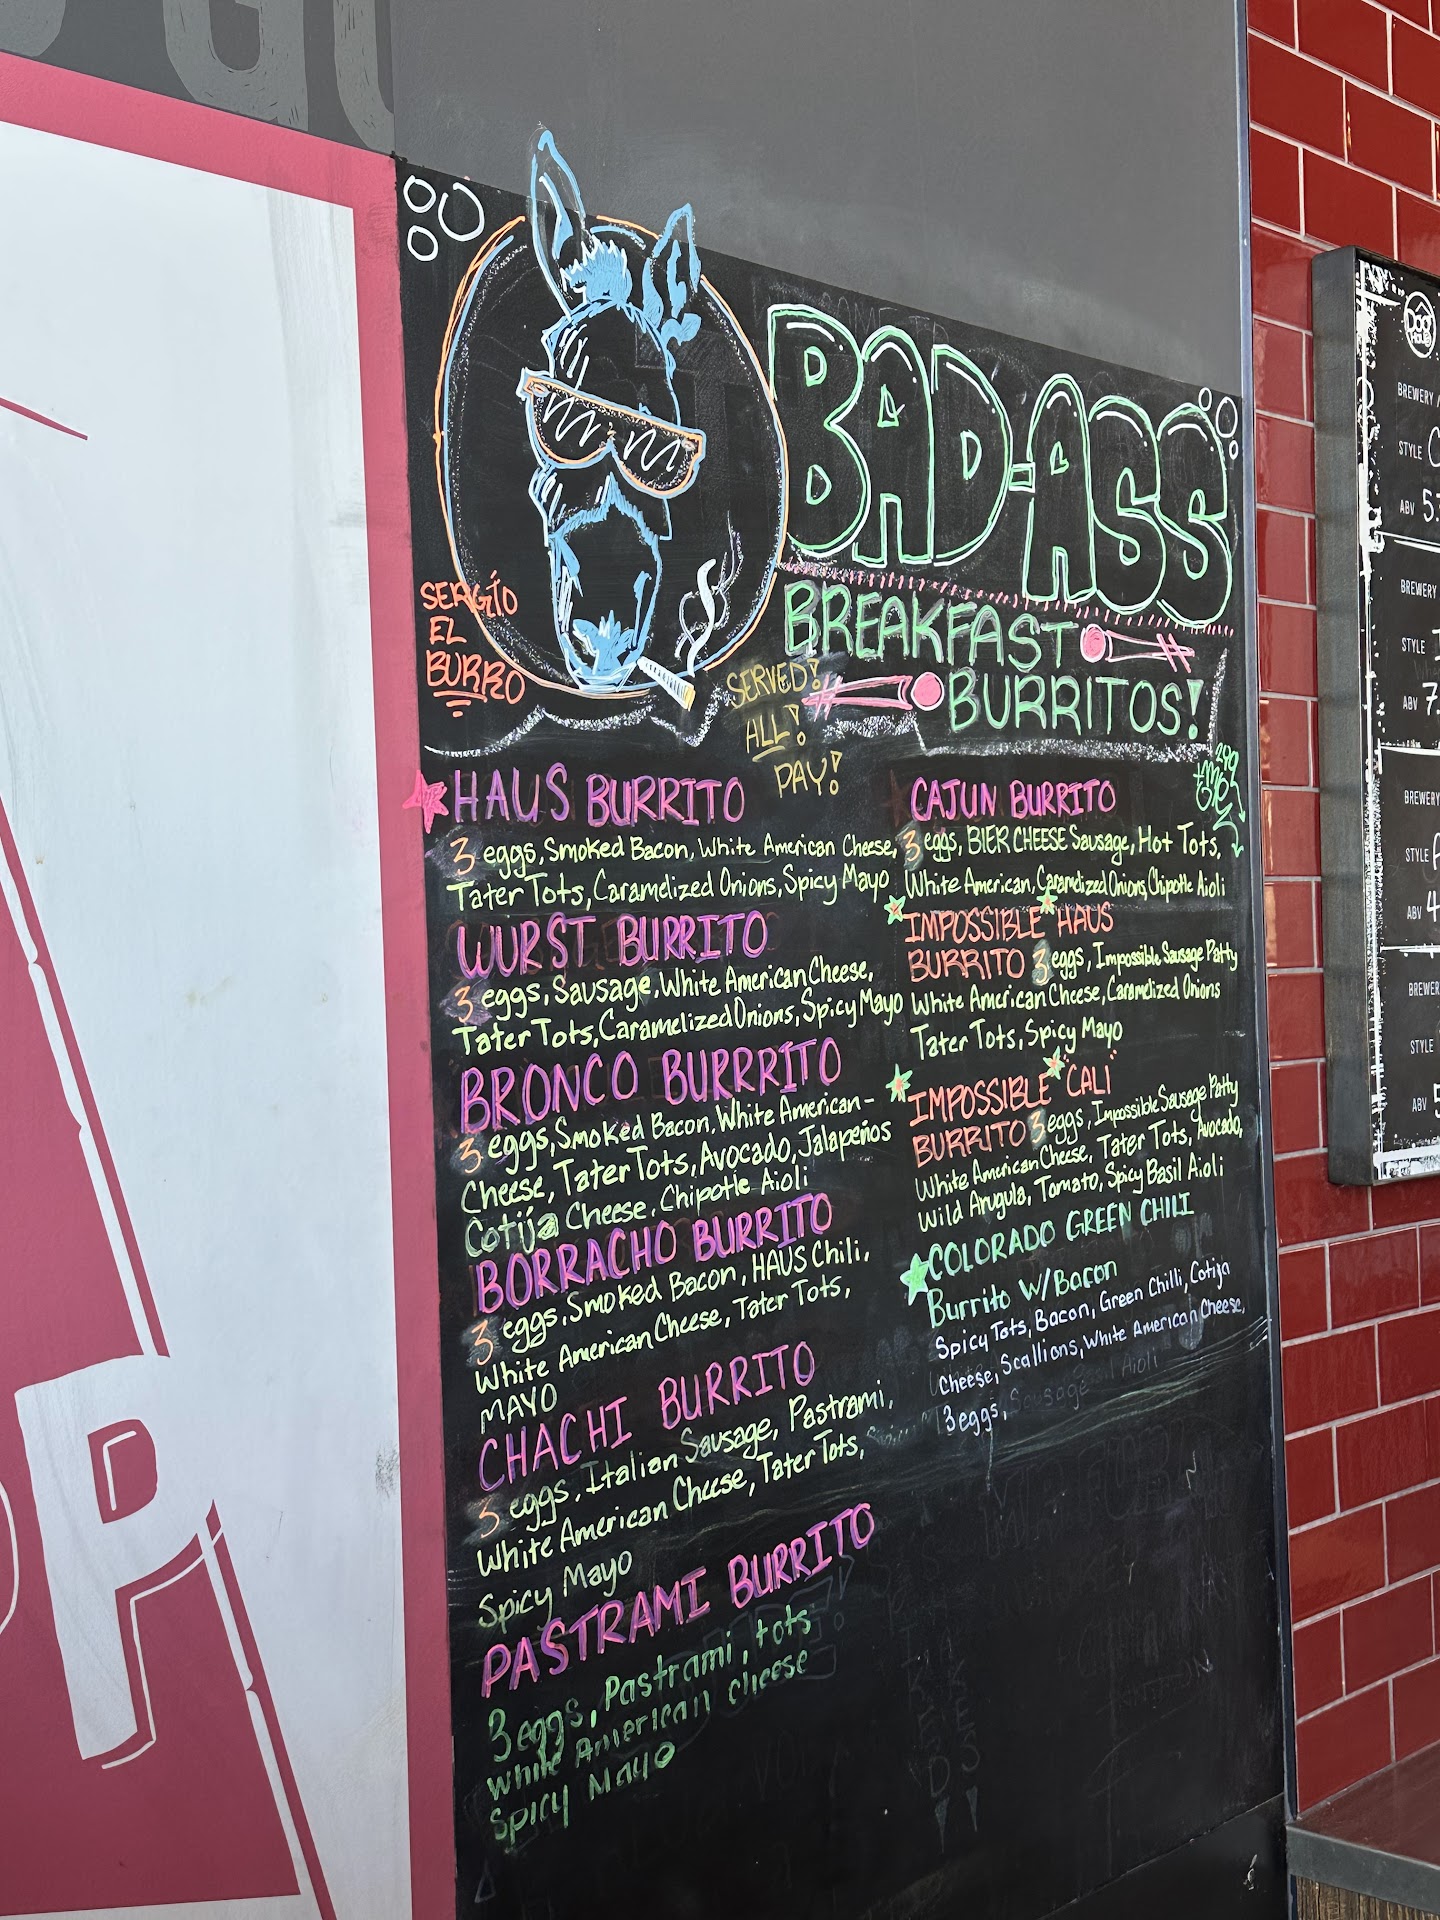 SERGÍO
EL
BURRO
BAD-ASS
BREAKFAST
BURRITOS!
SERVED!
ALL!
PAY!
HAUS BURRITO
3 eggs, Smoked Bacon, White American Cheese,
Tater Tots, Caramelized Onions, Spicy Mayo
WURST BURRITO
3 eggs, Sausage, White American Cheese,
Tater Tots, Caramelized Onions, Spicy Mayo
BRONCO BURRRITO
3 eggs, Smoked Bacon, White American-
Cheese, Tater Tots, Avocado, Jalapeños
Cotija Cheese, Chipotle Aioli
BORRACHO BURRITO
3 eggs, Smoked Bacon, HAUS Chili,
White American Cheese, Tater Tots,
MAYO
CHACHI BURRITO
3 eggs, Italian Sausage, Pastrami,
White American Cheese, Tater Tots,
Spicy Mayo
PASTRAMI BURRITO
3 eggs, Pastrami, tots
white American cheese
Spicy Mayo
CAJUN BURRITO
3 eggs, BIER CHEESE Sausage, Hot Tots,
White American, Caramelized Onions, Chipotle Aioli
IMPOSSIBLE HAUS
BURRITO 3 eggs, Impossible Sausage Patty
White American Cheese, Caramelized Onions
Tater Tots, Spicy Mayo
IMPOSSIBLE CALI
BURRITO 3 eggs, Impossible Sausage Patty
White American Cheese, Tater Tots, Avocado,
Wild Arugula, Tomato, Spicy Basil Aioli
COLORADO GREEN CHILI
Burrito W/Bacon
Spicy Tots, Bacon, Green Chilli, Cotija
Cheese, Scallions, White American Cheese,
3 eggs,
P
Dog
Haus
BREWERY
STYLE
ABV 5.
BREWERY
STYLE
ABV 7.
BREWERY
STYLE
ABV 4
BREWER
STYLE
ABV 5